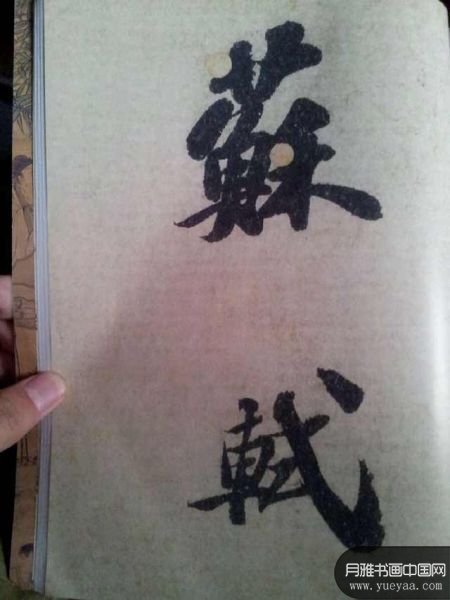 蘇
軾
月雅书画中国网
www.yueyaa.com